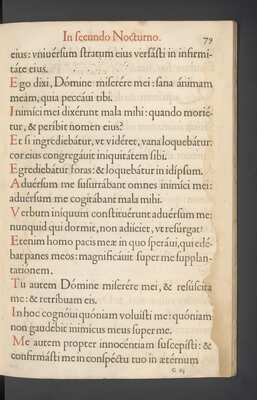 In secundo Nocturno. 79
eius: vniuérsum stratum eius versásti in infirmi-
táte eius.
Ego dixi, Dómine miserére mei: sana ánimam
meam, quia peccáui tibi.
Inimíci mei dixérunt mala mihi: quando morié-
tur, & períbit nomen eius?
Et si ingrediebátur, vt vidéret, vana loquebátur:
cor eius congregáuit iniquitátem sibi.
Egrediebátur foras: & loquebátur in idípsum.
Aduérsum me susurrábant omnes inimíci mei:
aduérsum me cogitábant mala mihi.
Verbum iniquum constituérunt aduérsum me:
nunquid qui dormit, non adiíciet, vt resúrgat
Etenim homo pacis meæ in quo speráui, qui edé-
bat panes meos: magnificáuit super me supplan-
tatiónem.
Tu autem Dómine miserére mei, & resúscita
me: & retríbuam eis.
In hoc cognóui quóniam voluísti me: quóniam
non gaudébit inimícus meus super me.
Me autem propter innocéntiam suscepísti: &
confirmásti me in conspéctu tuo in ætérnum